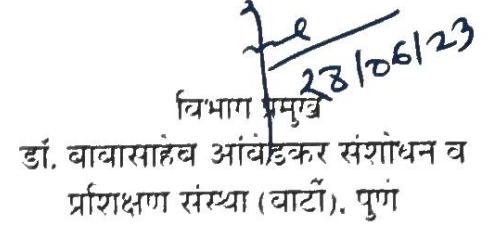 28/06/23
विभाग प्रमुख
डॉ. बाबासाहेब आंबेडकर संशोधन व
प्रशिक्षण संस्था (बार्टी), पुणे